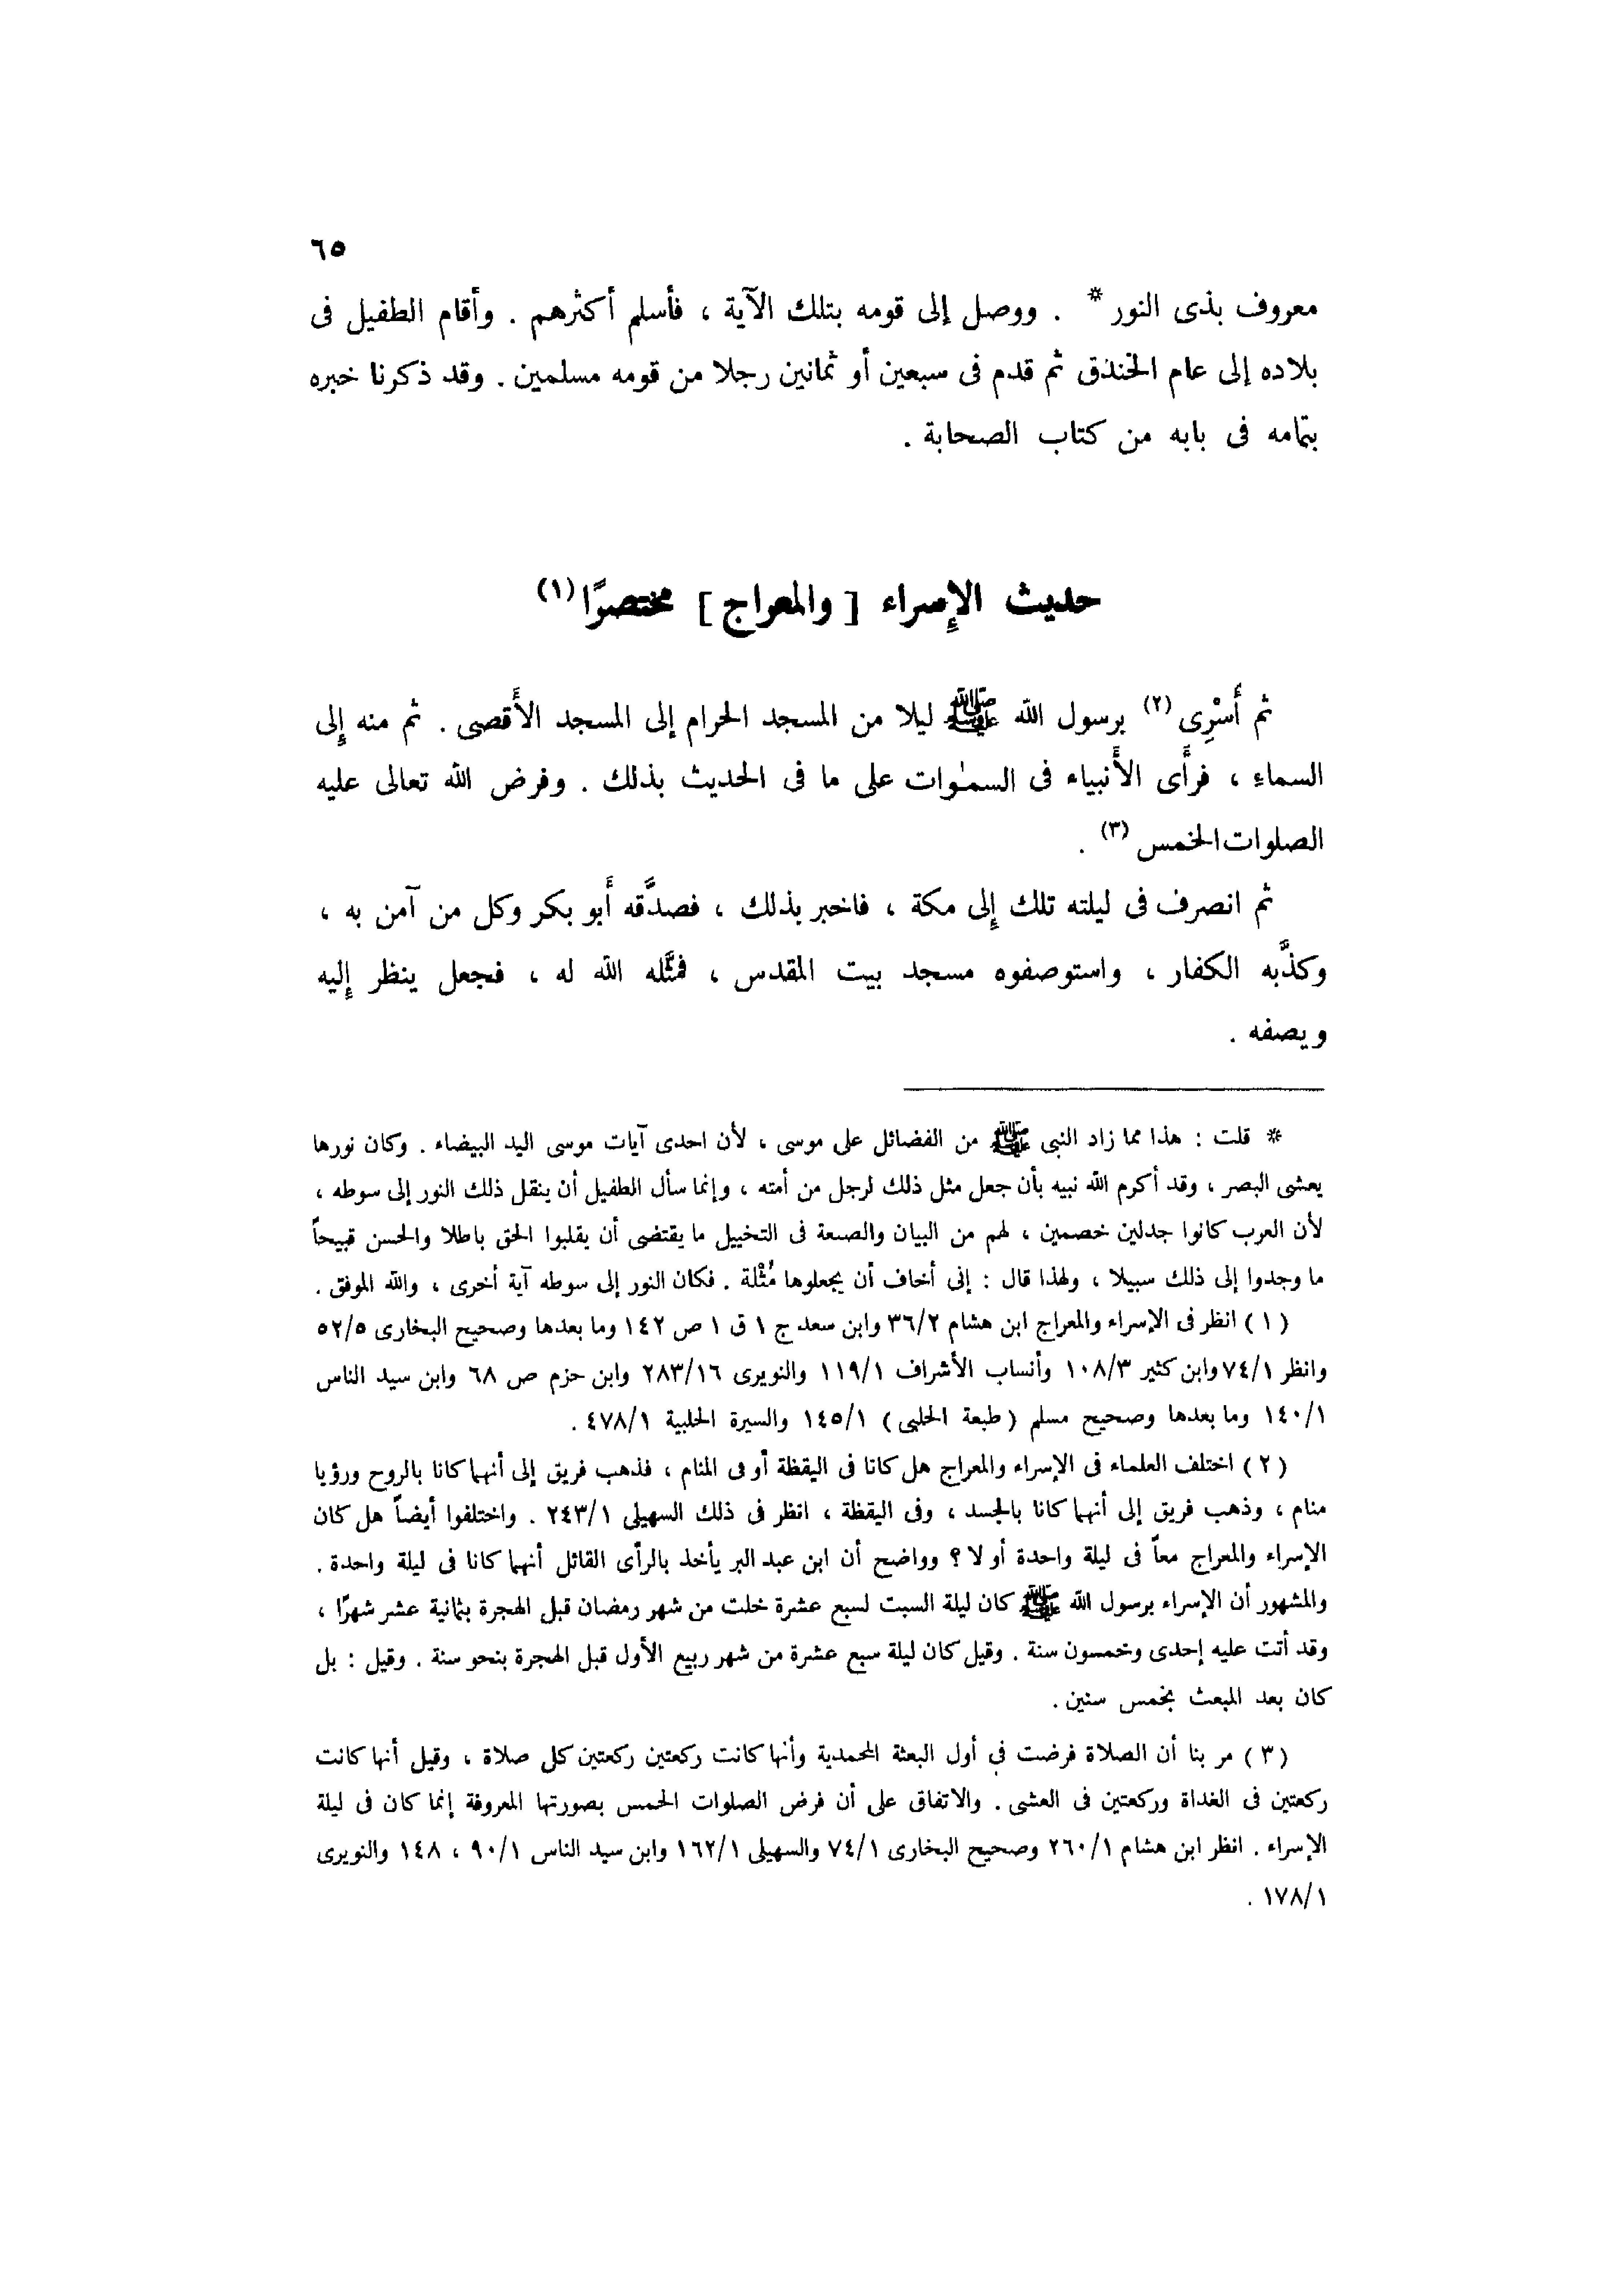 ٦٥
معروف بذى النور * . ووصل إلى قومه بتلك الآية ، فأسلم أكثرهم . وأقام الطفيل فى
بلاده إلى عام الخندق ثم قدم فى سبعين أو ثمانين رجلا من قومه مسلمين . وقد ذكرنا خبره
بتمامه فى بابه من كتاب الصحابة .
حديث الإسراء [ والمعراج ] مختصرًا (١)
ثم أُسْرِى (٢) برسول الله ﷺ ليلا من المسجد الحرام إلى المسجد الأَقصى . ثم منه إلى
السماءِ ، فرأَى الأَنبياء فى السمٰوات على ما فى الحديث بذلك . وفرض الله تعالى عليه
الصلوات الخمس (٣) .
ثم انصرف فى ليلته تلك إلى مكة ، فاخبر بذلك ، فصدَّقه أَبو بكر وكل من آمن به ،
وكذَّبه الكفار ، واستوصفوه مسجد بيت المقدس ، فمثَّله الله له ، فجعل ينظر إليه
ويصفه .
* قلت : هذا مما زاد النبى ﷺ من الفضائل على موسى ، لأن احدى آيات موسى اليد البيضاء . وكان نورها
يعشى البصر ، وقد أكرم الله نبيه بأن جعل مثل ذلك لرجل من أمته ، وإنما سأل الطفيل أن ينقل ذلك النور إلى سوطه ،
لأن العرب كانوا جدلين خصمين ، لهم من البيان والصنعة فى التخييل ما يقتضى أن يقلبوا الحق باطلا والحسن قبيحاً
ما وجدوا إلى ذلك سبيلا ، ولهذا قال : إنى أخاف أن يجعلوها مُثْلة . فكان النور إلى سوطه آية أخرى ، والله الموفق .
( ١ ) انظر فى الإسراء والمعراج ابن هشام ٣٦/٢ وابن سعد ج ١ ق ١ ص ١٤٢ وما بعدها وصحيح البخارى ٥٢/٥
وانظر ٧٤/١ وابن كثير ١٠٨/٣ وأنساب الأشراف ١١٩/١ والنويرى ٢٨٣/١٦ وابن حزم ص ٦٨ وابن سيد الناس
١٤٠/١ وما بعدها وصحيح مسلم ( طبعة الحلبى ) ١٤٥/١ والسيرة الحلبية ٤٧٨/١ .
( ٢ ) اختلف العلماء فى الإسراء والمعراج هل كانا فى اليقظة أو فى المنام ، فذهب فريق إلى أنهما كانا بالروح ورؤيا
منام ، وذهب فريق إلى أنهما كانا بالجسد ، وفى اليقظة ، انظر فى ذلك السهيلى ٢٤٣/١ . واختلفوا أيضاً هل كان
الإسراء والمعراج معاً فى ليلة واحدة أو لا ؟ وواضح أن ابن عبد البر يأخذ بالرأى القائل أنهما كانا فى ليلة واحدة .
والمشهور أن الإسراء برسول الله ﷺ كان ليلة السبت لسبع عشرة خلت من شهر رمضان قبل الهجرة بثمانية عشر شهرًا ،
وقد أتت عليه إحدى وخمسون سنة . وقيل كان ليلة سبع عشرة من شهر ربيع الأول قبل الهجرة بنحو سنة . وقيل : بل
كان بعد المبعث بخمس سنين .
( ٣ ) مر بنا أن الصلاة فرضت فى أول البعثة المحمدية وأنها كانت ركعتين ركعتين كل صلاة ، وقيل أنها كانت
ركعتين فى الغداة وركعتين فى العشى . والاتفاق على أن فرض الصلوات الخمس بصورتها المعروفة إنما كان فى ليلة
الإسراء . انظر ابن هشام ٢٦٠/١ وصحيح البخارى ٧٤/١ والسهيلى ١٦٢/١ وابن سيد الناس ٩٠/١ ، ١٤٨ والنويرى
١٧٨/١ .